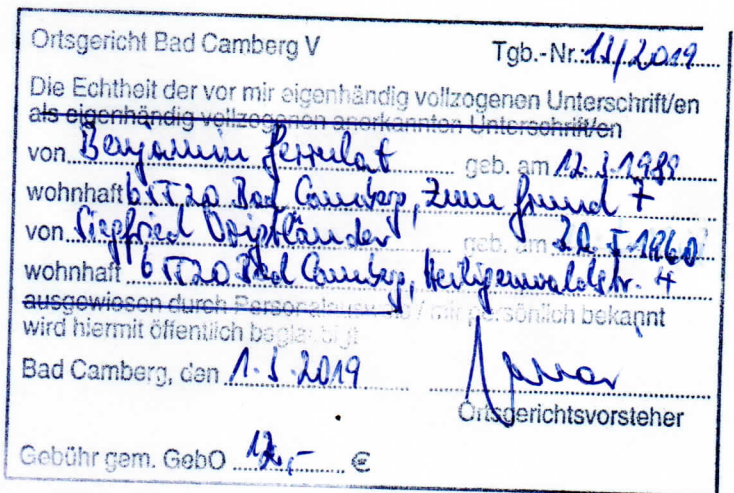 Ortsgericht Bad Camberg V Tgb.-Nr.: 13/2019
Die Echtheit der vor mir eigenhändig vollzogenen Unterschrift/en
als eigenhändig vollzogenen anerkannten Unterschrift/en
von Benjamin geb. am 12.3.1989
wohnhaft 65520 Bad Camberg, Zum Grund 7
von Siegfried Voigtländer geb. am 20.5.1960
wohnhaft 65520 Bad Camberg, Heiligenwaldstr. 4
ausgewiesen durch Personalausweis / mir persönlich bekannt
wird hiermit öffentlich beglaubigt
Bad Camberg, den 1.3.2019
Ortsgerichtsvorsteher
Gebühr gem. GebO 12,- €